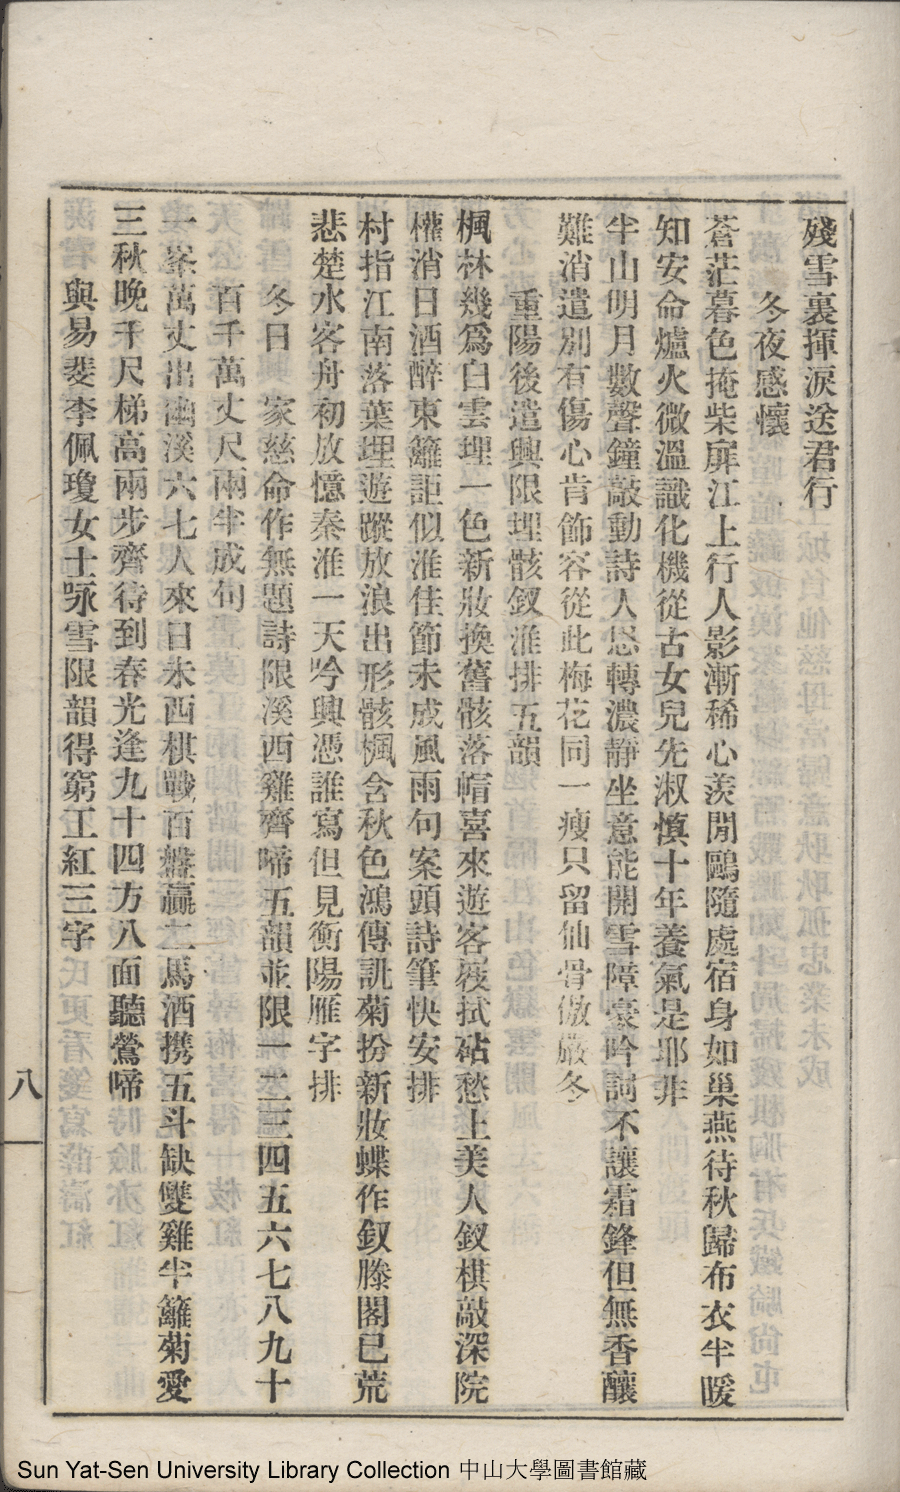 殘雪裏揮淚送君行
冬夜感懷
蒼茫暮色掩柴扉江上行人影漸稀心羨閒鷗隨處宿身如巢燕待秋歸布衣半暖
知安命爐火微溫識化機從古女兒先淑慎十年養氣是耶非
半山明月數聲鐘敲動詩人思轉濃靜坐意能開雪障豪吟詞不讓霜鋒但無香釀
難消遣別有傷心肯飾容從此梅花同一瘦只留仙骨傲嚴冬
重陽後遣興限埋骸釵淮排五韻
楓林幾爲白雲埋一色新妝換舊骸落帽喜來遊客屐拭砧愁上美人釵棋敲深院
權消日酒醉東籬詎似淮佳節未成風雨句案頭詩筆快安排
村指江南落葉埋遊蹤放浪出形骸楓含秋色鴻傳訊菊扮新妝蝶作釵滕閣已荒
悲楚水客舟初放憶秦淮一天吟興憑誰寫但見衡陽雁字排
冬日 家慈命作無題詩限溪西雞齊啼五韻並限一二三四五六七八九十
百千萬丈尺兩半成句
一峯萬丈出幽溪六七人來日未西棋戰百盤贏二馬酒攜五斗缺雙雞半籬菊愛
三秋晚千尺梯高兩步齊待到春光逢九十四方八面聽鶯啼
與易斐李佩瓊女士咏雪限韻得窮工紅三字
八
Sun Yat-Sen University Library Collection 中山大學圖書館藏